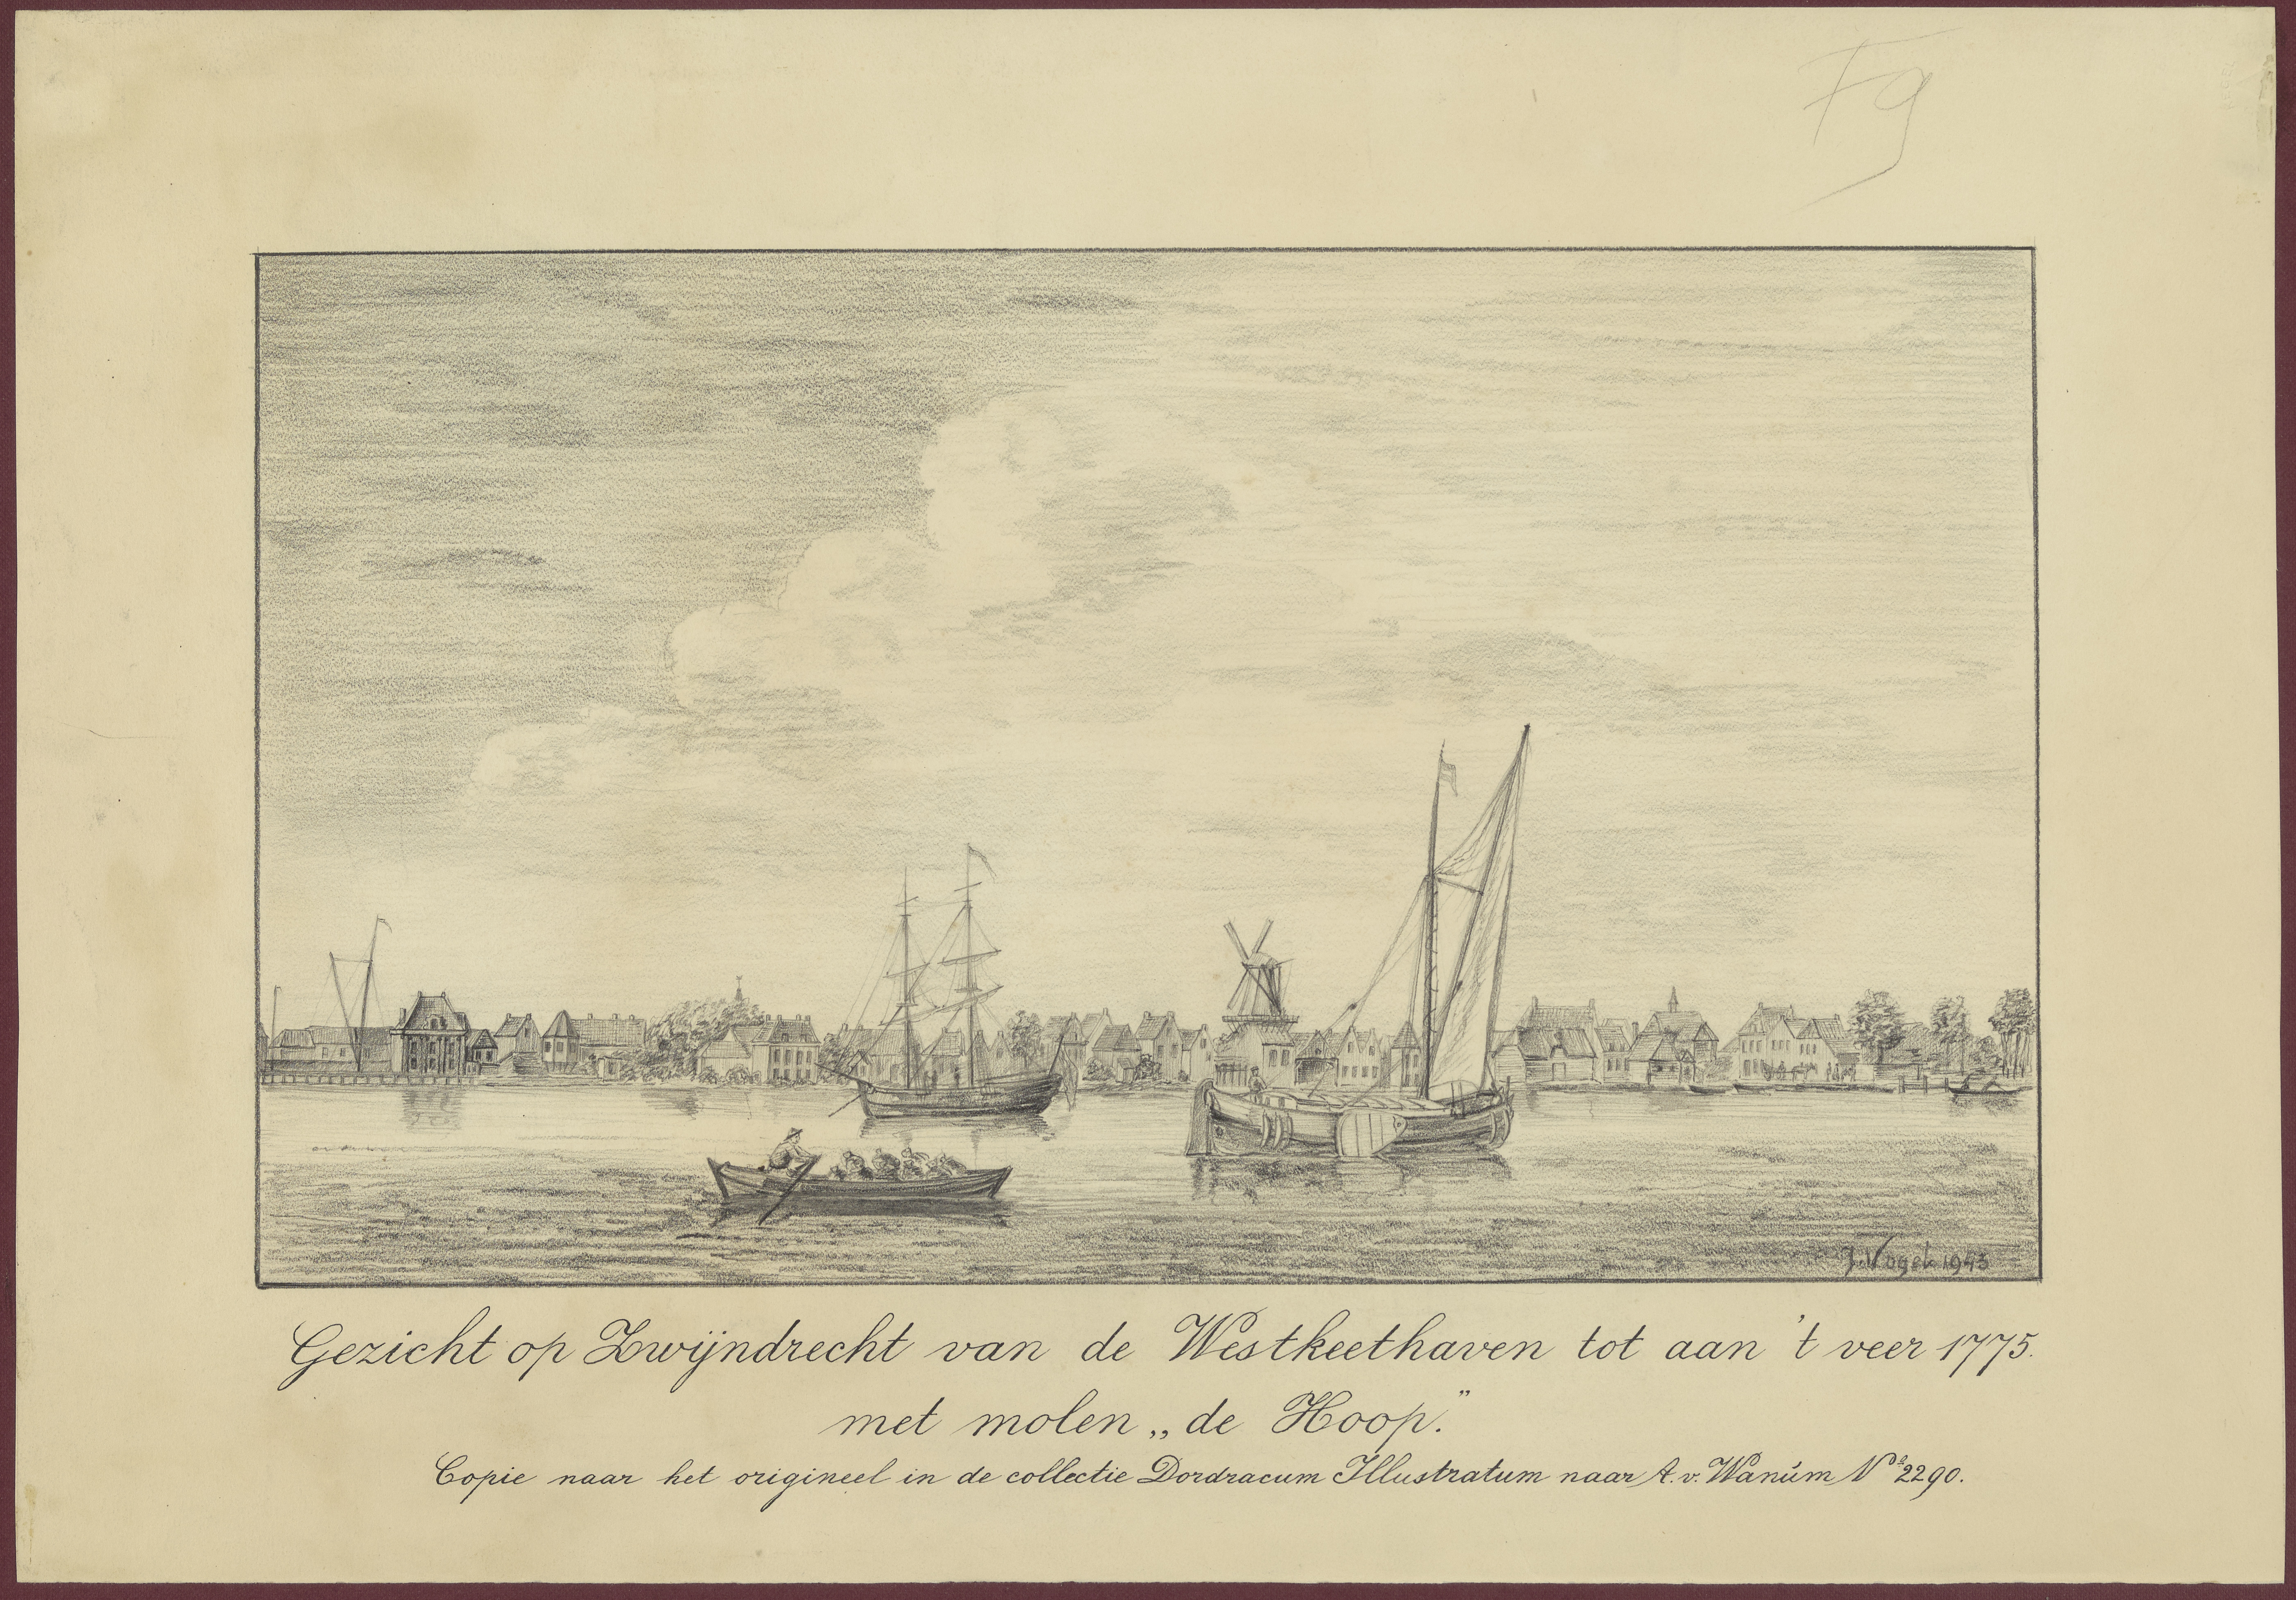 F9
J. Vogel 1943
Gezicht op Zwijndrecht van de Westkeethaven tot aan 't veer 1775.
met molen „de Hoop."
Copie naar het origineel in de collectie Dordracum Illustratum naar A. v. Wanúm Nº 2290.